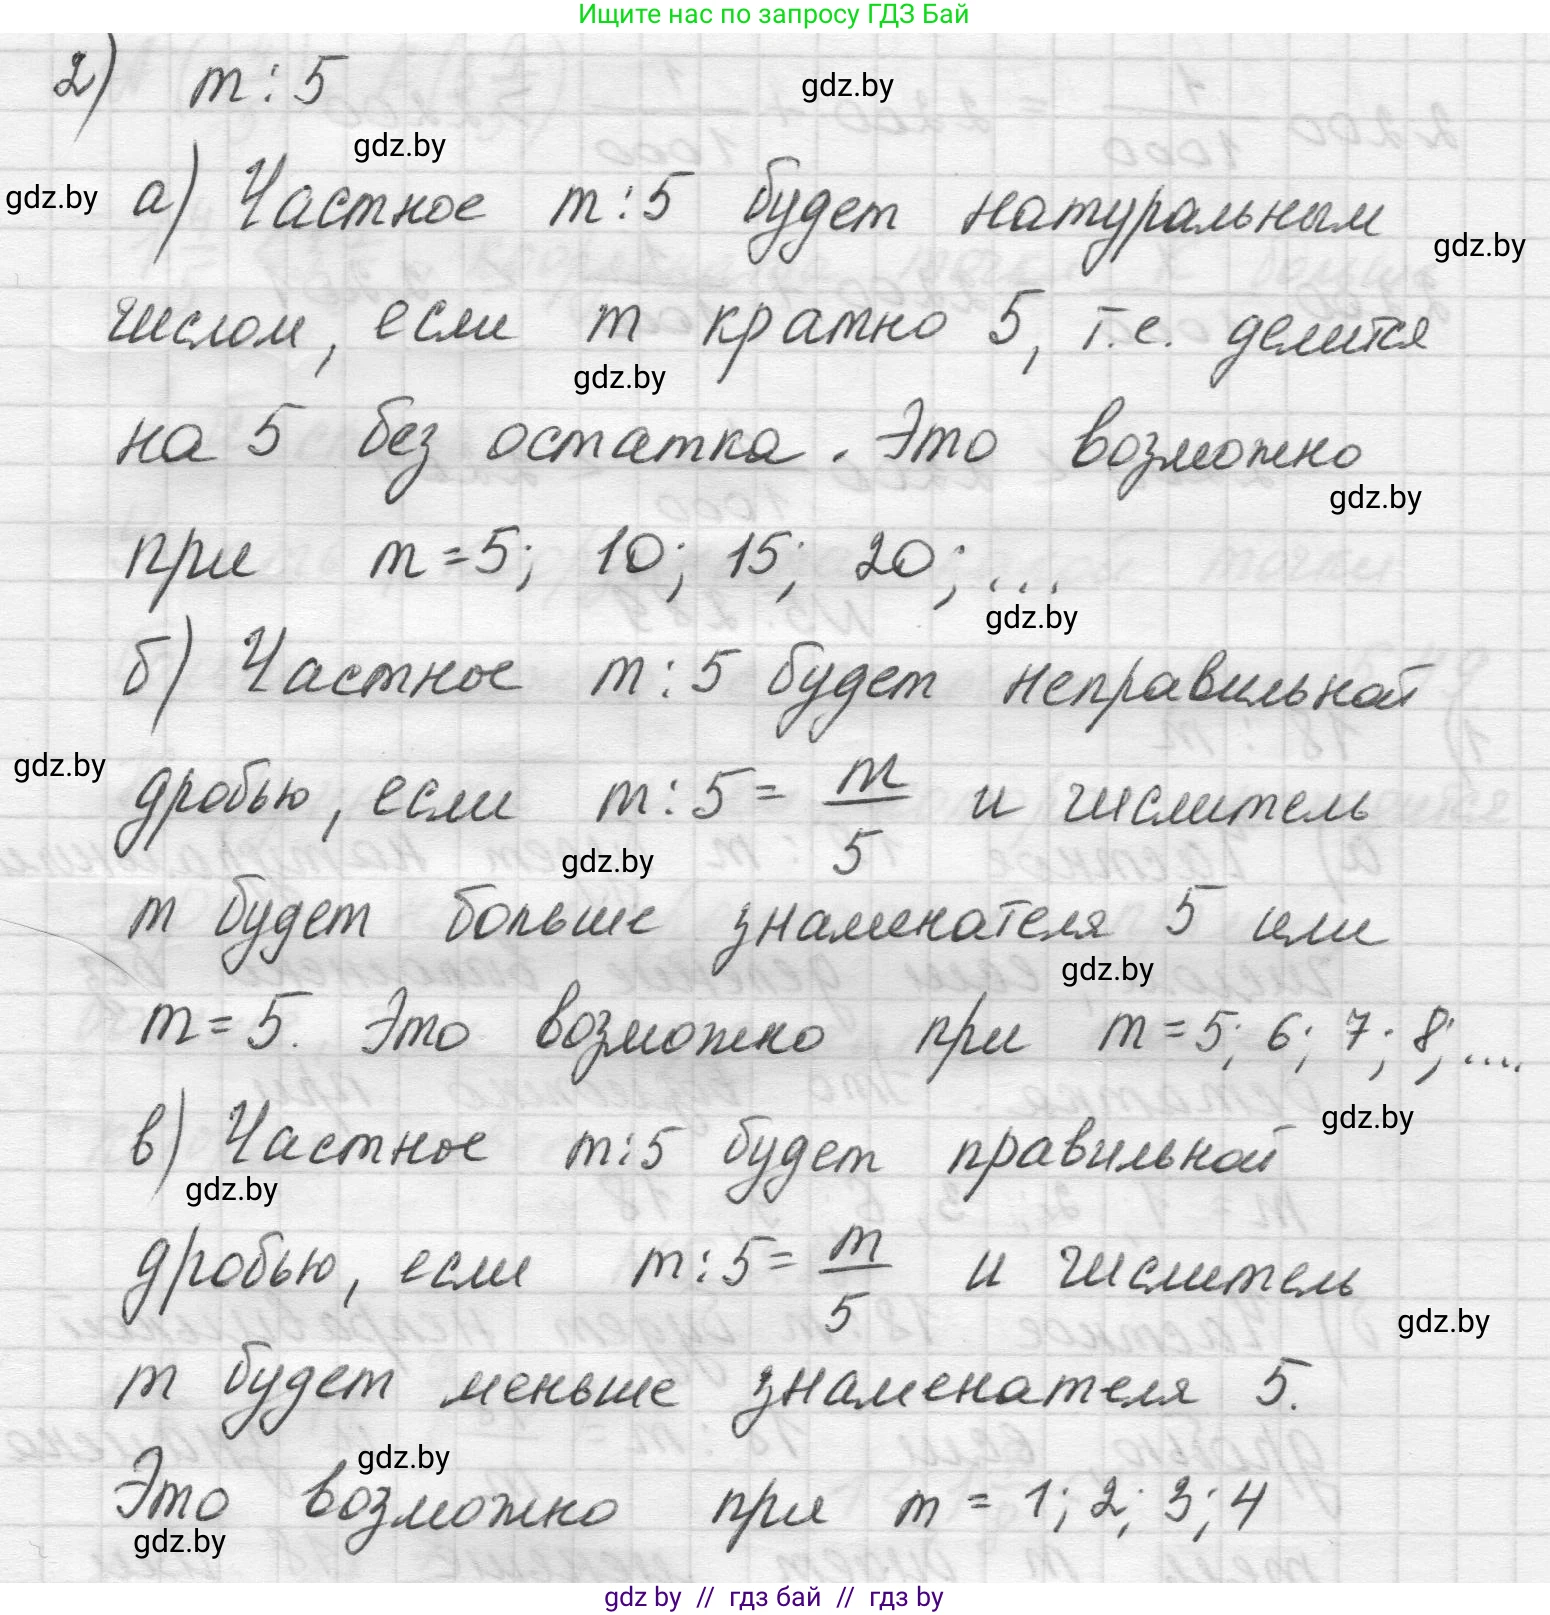 Ищите нас по запросу ГДЗ Бай
2) m : 5
gdz.by
gdz.by
gdz.by
а) Частное m : 5 будет натуральным
gdz.by
числом, если m кратно 5, т.е. делится
gdz.by
на 5 без остатка. Это возможно
gdz.by
при m = 5; 10; 15; 20; ...
gdz.by
б) Частное m : 5 будет неправильной
gdz.by
дробью, если m : 5 = m/5 и числитель
gdz.by
m будет больше знаменателя 5 или
gdz.by
m = 5. Это возможно при m = 5; 6; 7; 8; ....
gdz.by
в) Частное m : 5 будет правильной
gdz.by
дробью, если m : 5 = m/5 и числитель
gdz.by
m будет меньше знаменателя 5.
gdz.by
Это возможно при m = 1; 2; 3; 4
gdz.by
gdz by // гдз бай // гдз by